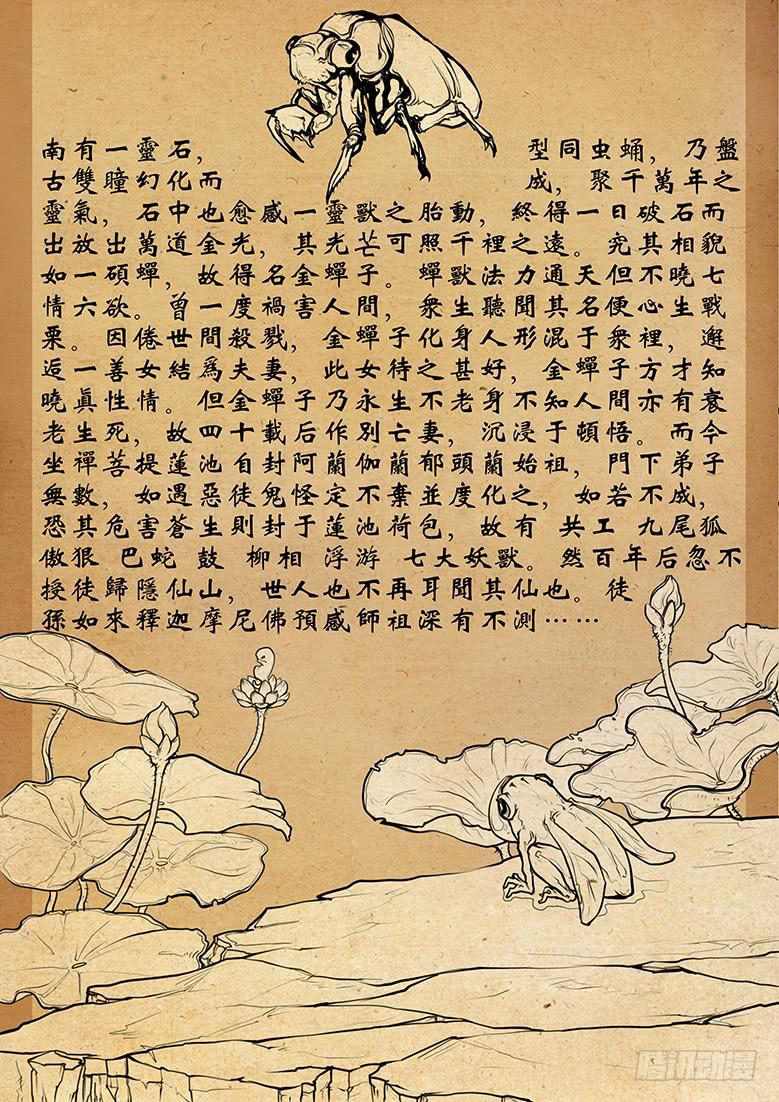 南有一靈石, 型同虫蛹, 乃盤
古雙瞳幻化而 成, 聚千萬年之
靈氣, 石中也愈感一靈獸之胎動, 終得一日破石而
出放出萬道金光, 其光芒可照千裡之遠。究其相貌
如一碩蟬, 故得名金蟬子。蟬獸法力通天但不曉七
情六欲。曾一度禍害人間, 衆生聽聞其名便心生戰
栗。因倦世間殺戮, 金蟬子化身人形混于衆裡, 邂
逅一善女結爲夫妻, 此女待之甚好, 金蟬子方才知
曉眞性情。但金蟬子乃永生不老身不知人間亦有衰
老生死, 故四十載后作別亡妻, 沉浸于頓悟。而今
坐禪菩提蓮池自封阿蘭伽蘭郁頭蘭始祖, 門下弟子
無數, 如遇惡徒鬼怪定不棄並度化之, 如若不成,
恐其危害蒼生則封于蓮池荷包, 故有 共工 九尾狐
傲狠 巴蛇 鼓 柳相 浮游 七大妖獸。然百年后忽不
授徒歸隱仙山, 世人也不再耳聞其仙也。徒
孫如來釋迦摩尼佛預感師祖深有不測……
騰訊動漫